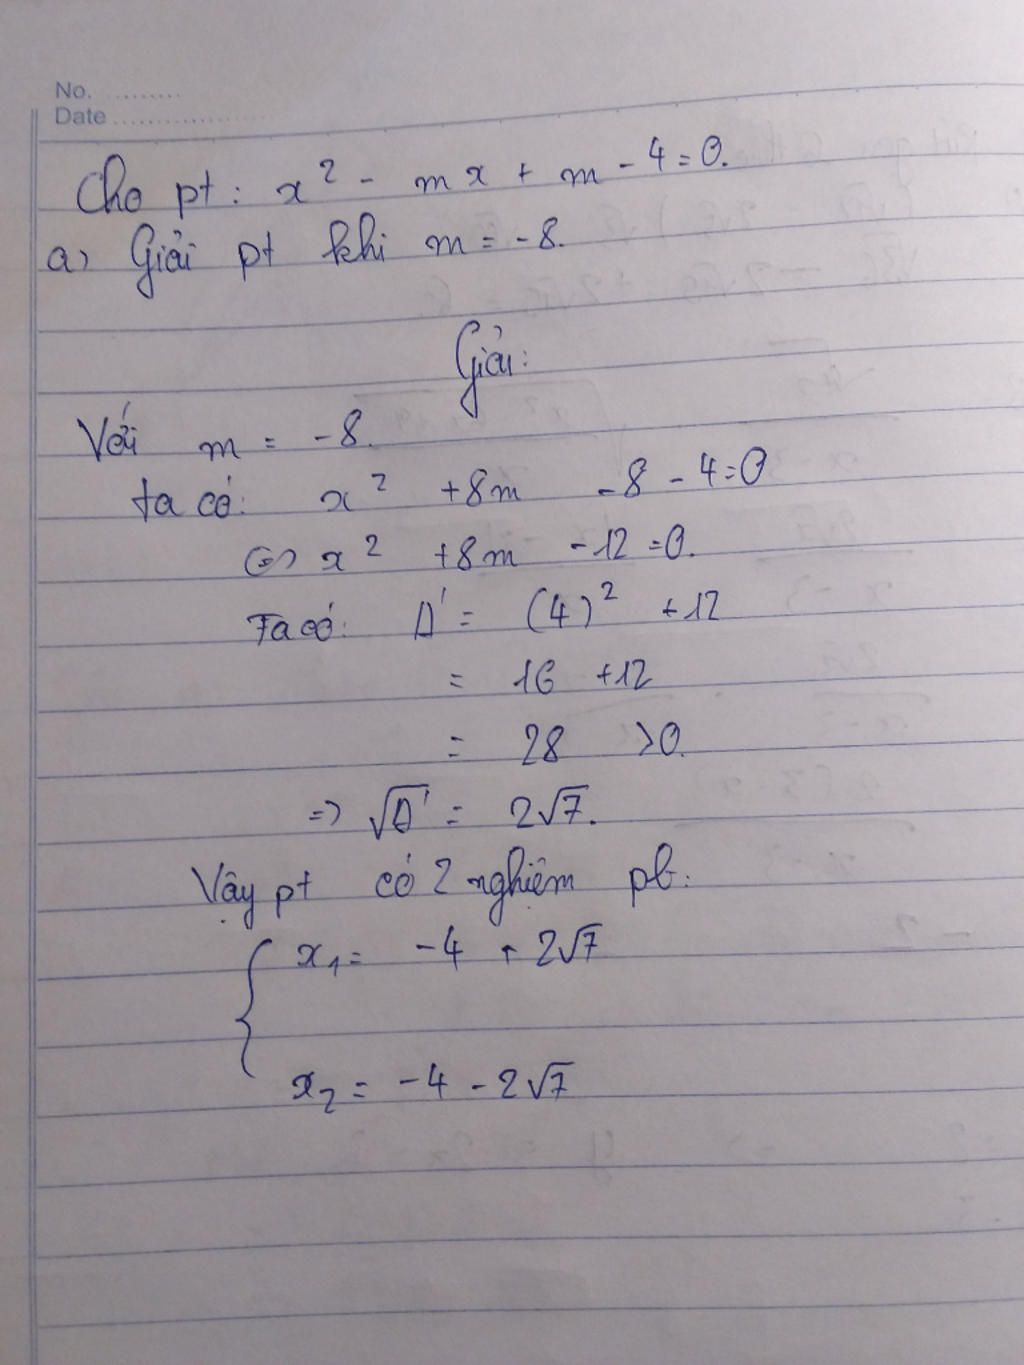 No. .........
Date ....................
Cho pt: x² - mx + m - 4 = 0.
a) Giải pt khi m = -8.
Giải:
Với m = -8.
ta có: x² +8m -8 - 4 = 0
<=> x² +8m -12 = 0.
Ta có: Δ' = (4)² +12
= 16 +12
= 28 >0.
=> √Δ' = 2√7.
Vậy pt có 2 nghiệm pb:
{ x₁ = -4 + 2√7
x₂ = -4 - 2√7